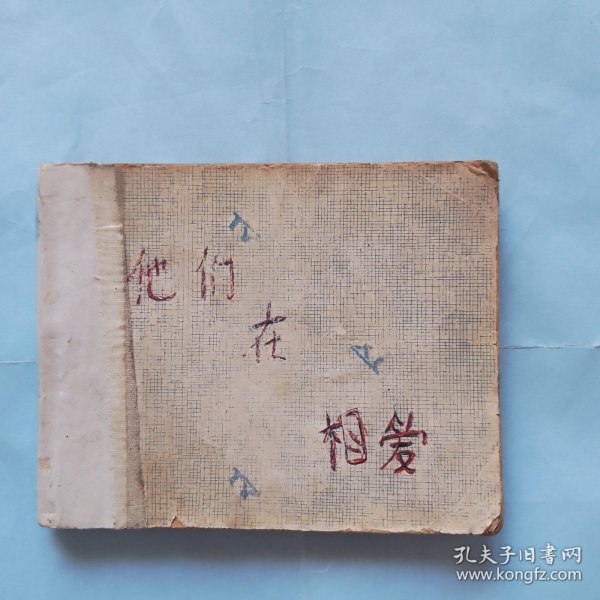 他们
在
相爱
孔夫子旧书网
www.kongfz.com